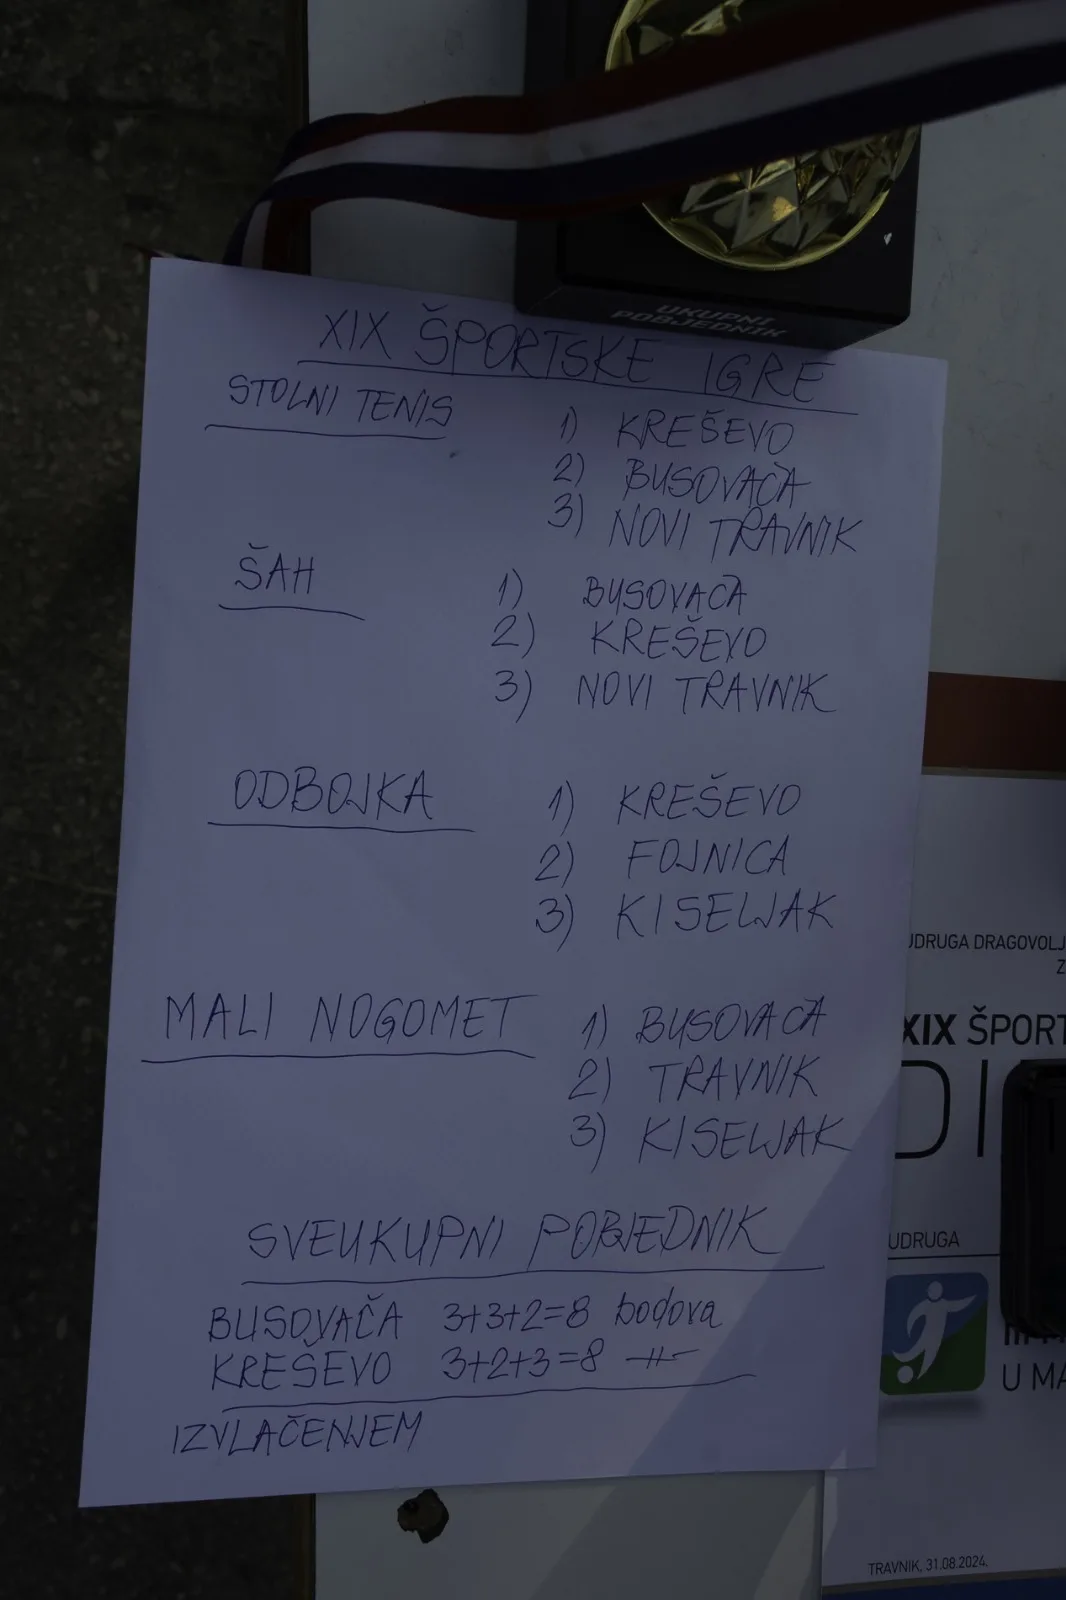 UKUPNI
POBJEDNIK
XIX ŠPORTSKE IGRE
STOLNI TENIS
1) KREŠEVO
2) BUSOVAČA
3) NOVI TRAVNIK
ŠAH
1) BUSOVAČA
2) KREŠEVO
3) NOVI TRAVNIK
ODBOJKA
1) KREŠEVO
2) FOJNICA
3) KISELJAK
MALI NOGOMET
1) BUSOVAČA
2) TRAVNIK
3) KISELJAK
SVEUKUPNI POBJEDNIK
BUSOVAČA 3+3+2=8 bodova
KREŠEVO 3+2+3=8 -||-
IZVLAČENJEM
UDRUGA DRAGOVOLJ
Z
XIX ŠPORT
DI
UDRUGA
U MA
TRAVNIK, 31.08.2024.